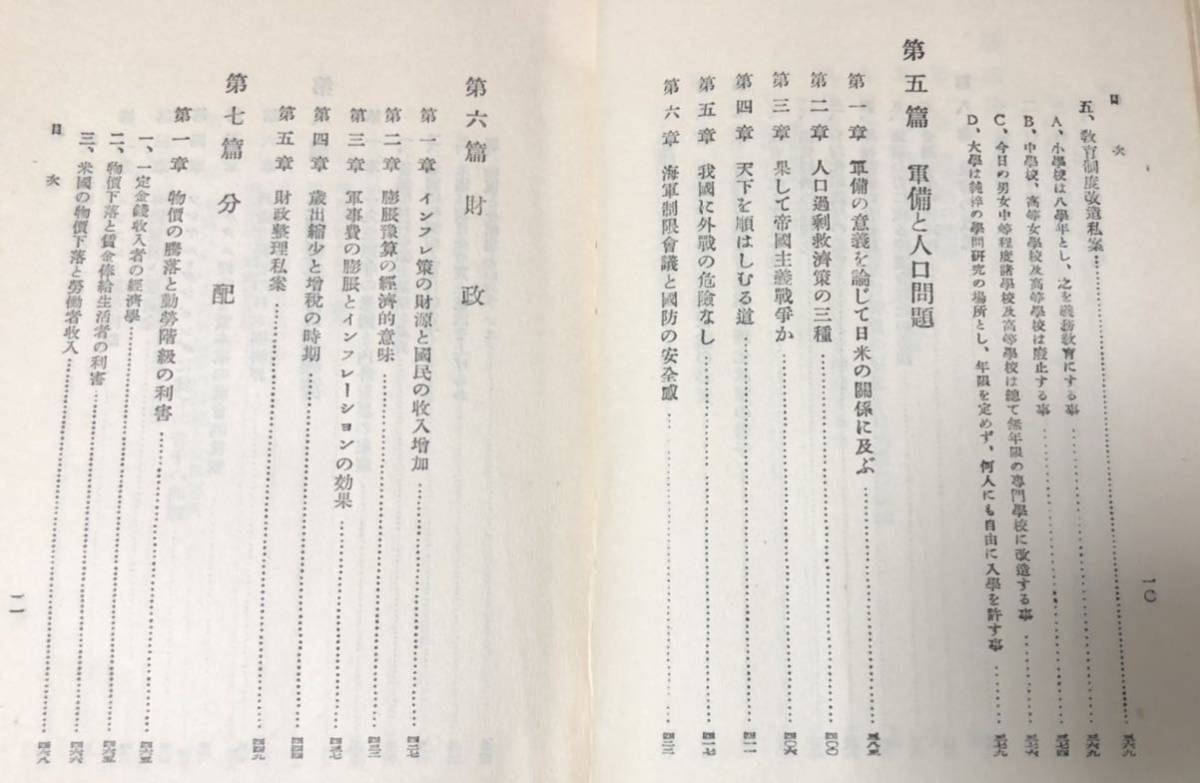 目次
一〇
五、敎育制度改造私案……三六九
A、小學校は八學年とし、之を義務敎育にする事……三六九
B、中學校、高等女學校及高等學校は廢止する事……三七四
C、今日の男女中等程度諸學校及高等學校は總て無年限の專門學校に改造する事……三七六
D、大學は純粹の學問研究の場所とし、年限を定めず、何人にも自由に入學を許す事……三七九
第五篇 軍備と人口問題
第一章 軍備の意義を論じて日米の關係に及ぶ……三八五
第二章 人口過剩救濟策の三種……四〇〇
第三章 果して帝國主義戰爭か……四〇六
第四章 天下を順はしむる道……四一一
第五章 我國に外戰の危險なし……四一七
第六章 海軍制限會議と國防の安全感……
第六篇 財政
第一章 インフレ策の財源と國民の收入增加……四二七
第二章 膨脹豫算の經濟的意味……四三二
第三章 軍事費の膨脹とインフレーションの效果……四三七
第四章 歲出縮少と增稅の時期……四四四
第五章 財政整理私案……四四九
第七篇 分配
第一章 物價の騰落と勤勞階級の利害……四六五
一、一定金錢收入者の經濟學……四六五
二、物價下落と賃金俸給生活者の利害……四六六
三、米國の物價下落と勞働者收入……四六八
目次
一一